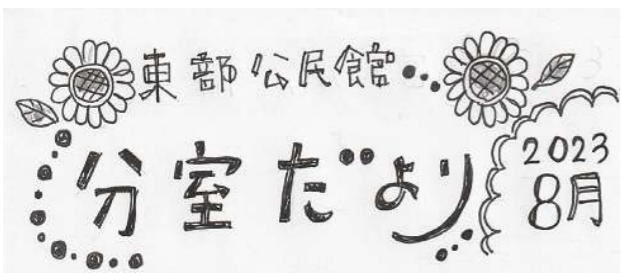 東部公民館
分室だより
2023
8月